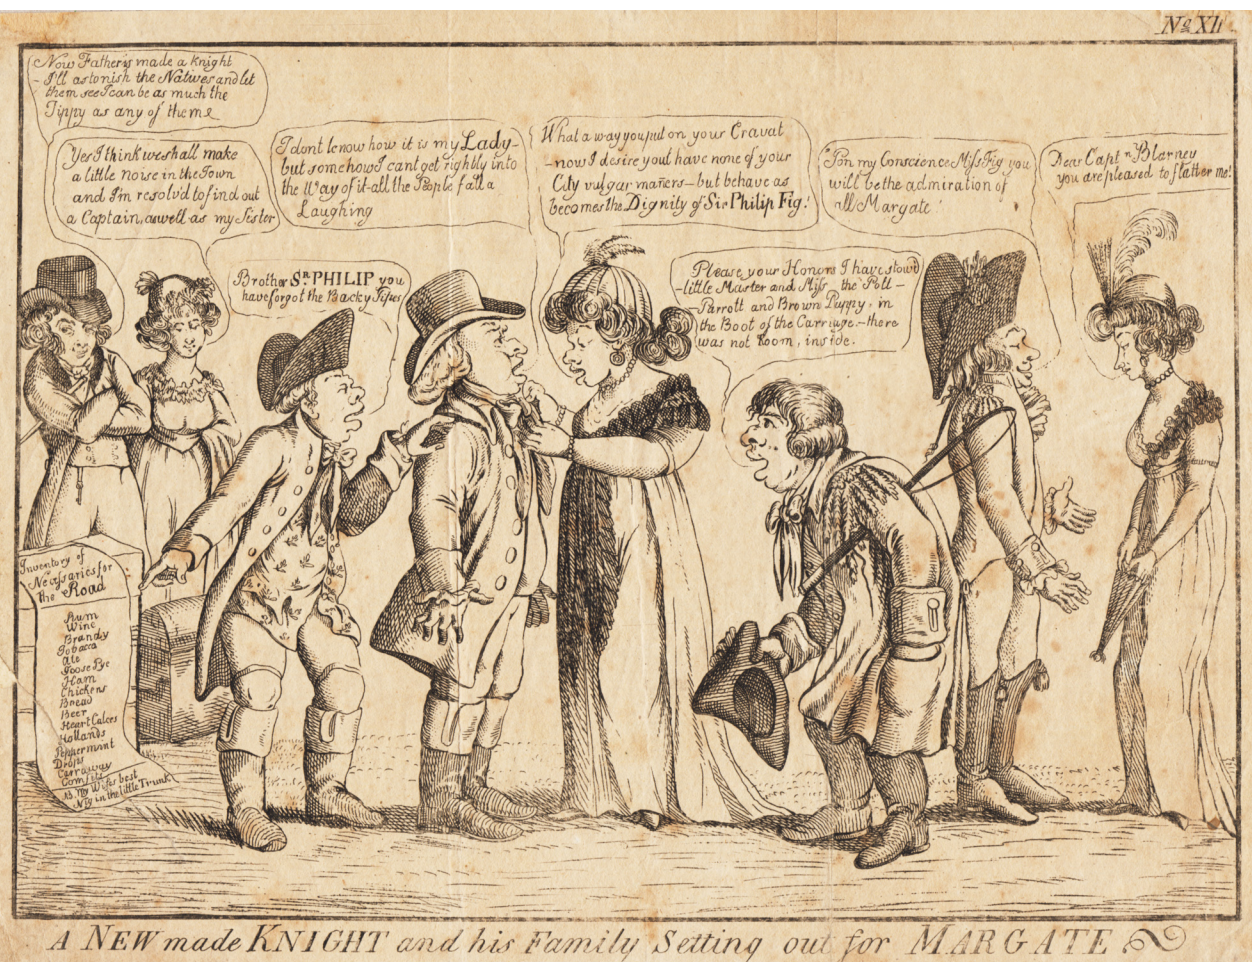 No XII
Now Father is made a Knight
- I'll astonish the Natives and let
them see I can be as much the
Tippy as any of them
Yes I think we shall make
a little noise in the Town
and I'm resolv'd to find out
a Captain, as well as my Sister
I dont know how it is my Lady-
but some how I cant get rightly into
the Way of it-all the People fall a
Laughing
What a way you put on your Cravat
-now I desire youl have none of your
City vulgar maners-but behave as
becomes the Dignity of Sir Philip Fig!
'Pon my Conscience Miss Fig you
will be the admiration of
all Margate!
Dear Captn Blarney
you are pleased to flatter me!
Brother Sr PHILIP you
have forgot the Backy Pipes
Please your Honors I have stowd
-little Master and Miss, the Poll-
Parrott and Brown Puppy, in
the Boot of the Carriage.-there
was not Room, inside.
Inventory of
Necessaries for
the Road
Rum
Wine
Brandy
Tobacca
Ale
Goose Pye
Ham
Chickens
Bread
Beer
Heart Cakes
Hollands
Peppermint
Drops
Carraway
Comfits
NB my Wifes best
Wig in the little Trunk
A NEW made KNIGHT and his Family Setting out for MARGATE